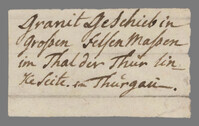 Granit Geschieb in
großen Felsen Maßen
im Thal der Thur lin-
ke Seite. im Thurgäu.